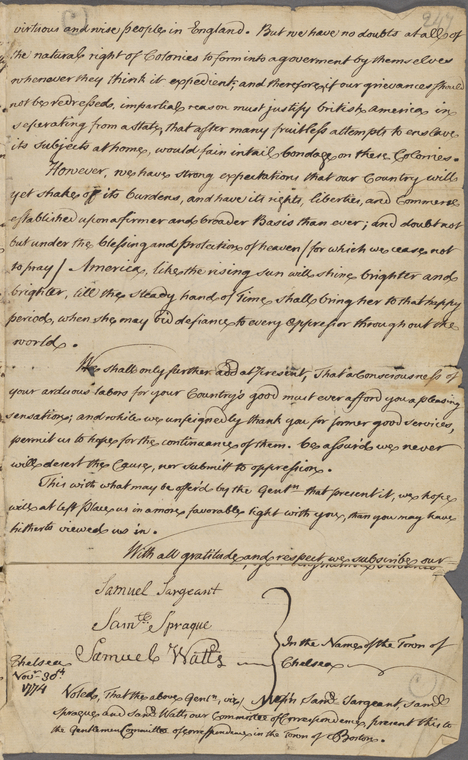 247
virtuous and wise people in England. But we have no doubts at all of
the natural right of Colonies to form into a goverment by themselves
whenever they think it expedient; and therefore if our grievances should
not be redressed, impartial reason must justify british America in
seperating from a State, that after many fruitless attempts to enslave
its subjects at home, would fain intail bondage on these Colonies.
However, we have strong expectations that our Country will
yet shake off its burdens, and have its rights, liberties, and Commerce
established upon a firmer and broader Basis than ever; and doubt not
but under the blessing and protection of heaven /for which we cease not
to pray/ America, like the rising sun will shine brighter and
brighter, till the steady hand of time shall bring her to that happy
period, when she may bid defiance to every oppressor throughout the
world.
We shall only further add at present, That a Consciousness of
your arduous labors for your Country's good must ever afford you a pleasing
sensation; and while we unfeignedly thank you for former good services,
permit us to hope for the continuance of them. Be assur'd we never
will desert the Cause, nor submit to oppression.
This with what may be offer'd by the Gentn that present it, we hope
will at left place us in a more favorable light with you, than you may have
hitherto viewed us in.
With all gratitude and respect we subscribe our
Samuel Sargeant
Samll Sprague
Samuel Watts
In the Name of the Town of
Chelsea
Chelsea
Novr 30th
1774
Voted, That the above Gentn, viz, Messrs Saml Sargeant, Saml
Sprague and Saml Watts, our Committee of Correspondence, present this to
the Gentlemen Committee of Correspondence in the Town of Boston.